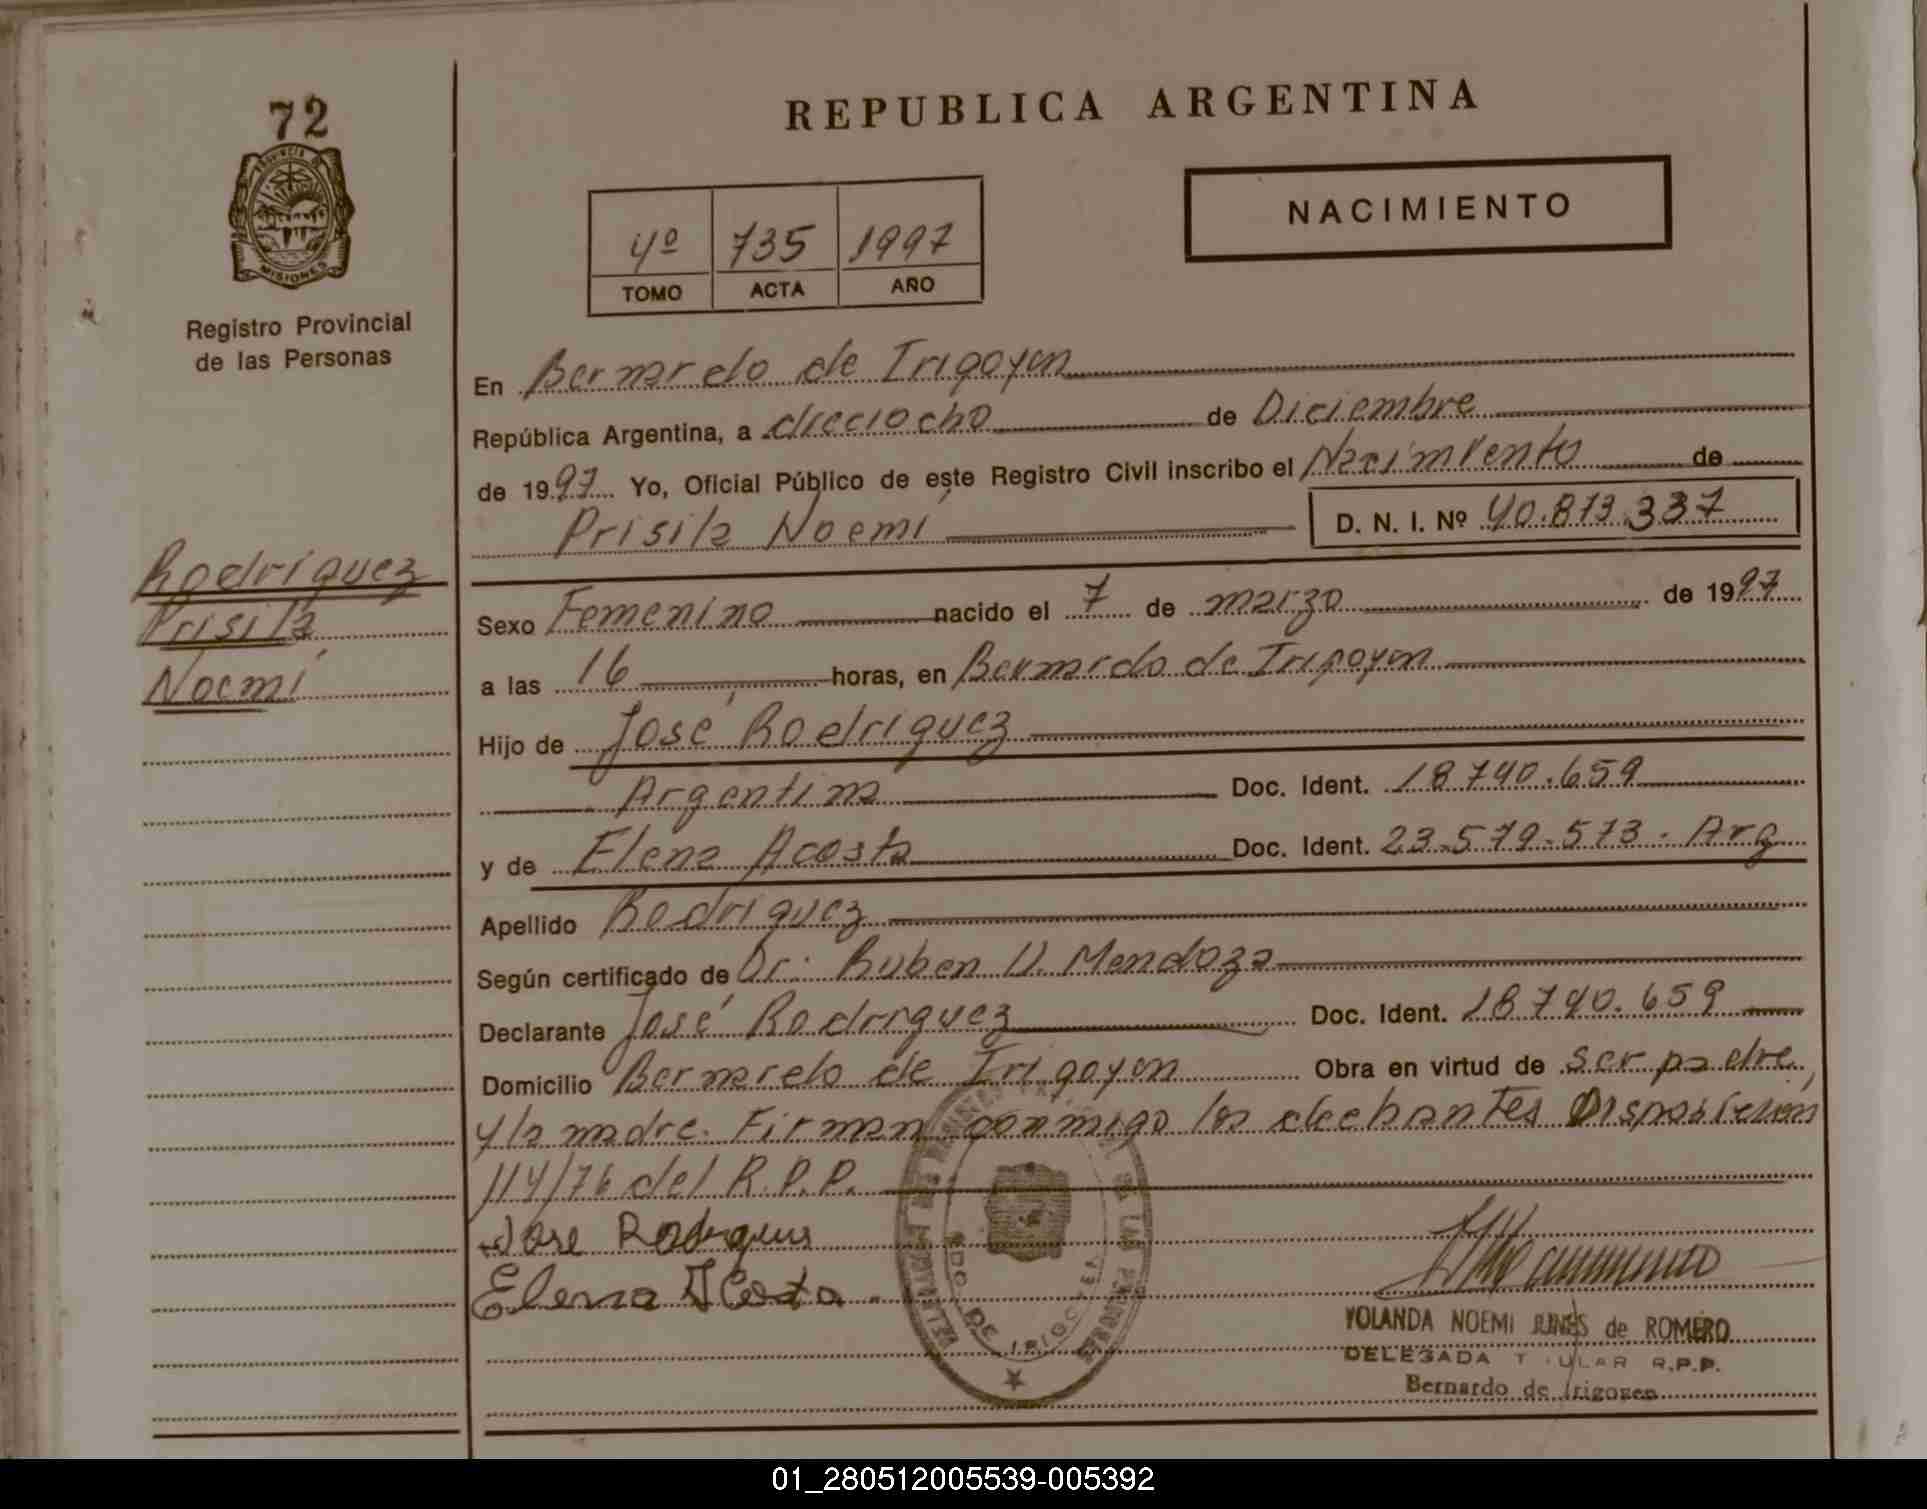 72
PROVINCIA DE
MISIONES
Registro Provincial
de las Personas
Rodríguez
Prisila
Noemí
REPUBLICA ARGENTINA
NACIMIENTO
4º 735 1997
TOMO ACTA AÑO
En Bernardo de Irigoyen
República Argentina, a dieciocho de Diciembre
de 1997 Yo, Oficial Público de este Registro Civil inscribo el Nacimiento de
Prisila Noemí D. N. I. Nº 40.873.337
Sexo Femenino nacido el 7 de marzo de 1997
a las 16 horas, en Bernardo de Irigoyen
Hijo de José Rodríguez
Argentina Doc. Ident. 18.740.659
y de Elena Acosta Doc. Ident. 23.579.573. Arg
Apellido Rodríguez
Según certificado de Dr. Ruben D. Mendoza
Declarante José Rodríguez Doc. Ident. 18.740.659
Domicilio Bernardo de Irigoyen Obra en virtud de ser padre
y la madre. Firman conmigo los Disposición
114/76 del R.P.P.
Jose Rodrigues
Elena Acosta.
DE IRIGOYEN
YOLANDA NOEMI de ROMERO
DELEGADA T ULAR R.P.P.
Bernardo de Irigoyen
01_280512005539-005392